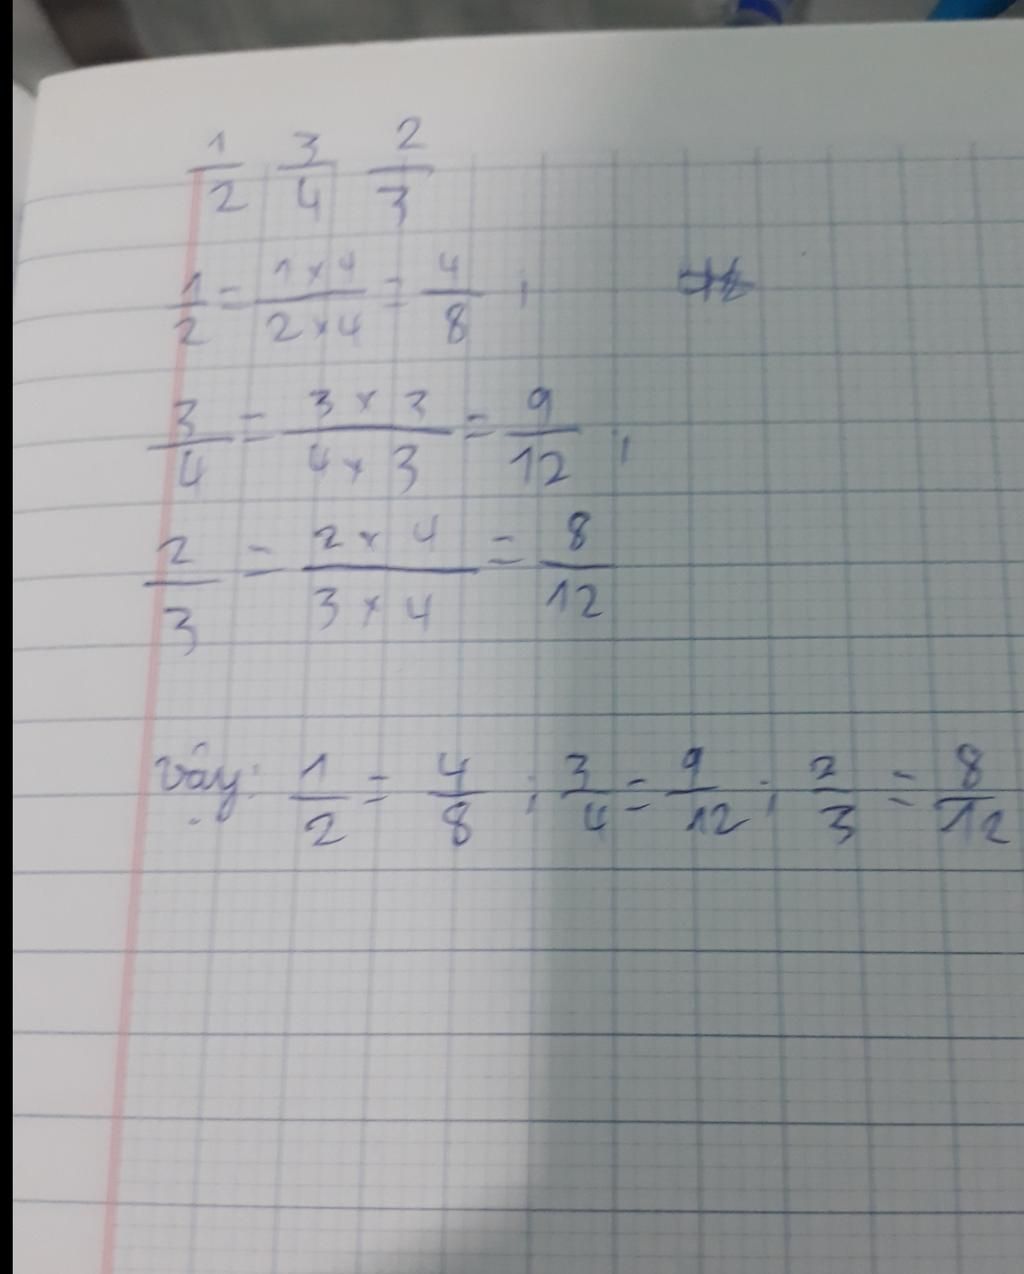 1/2 3/4 2/3
1/2 = 1 x 4 / 2 x 4 = 4/8 ;
3/4 = 3 x 3 / 4 x 3 = 9/12 ;
2/3 = 2 x 4 / 3 x 4 = 8/12
Vậy: 1/2 = 4/8 ; 3/4 = 9/12 ; 2/3 = 8/12